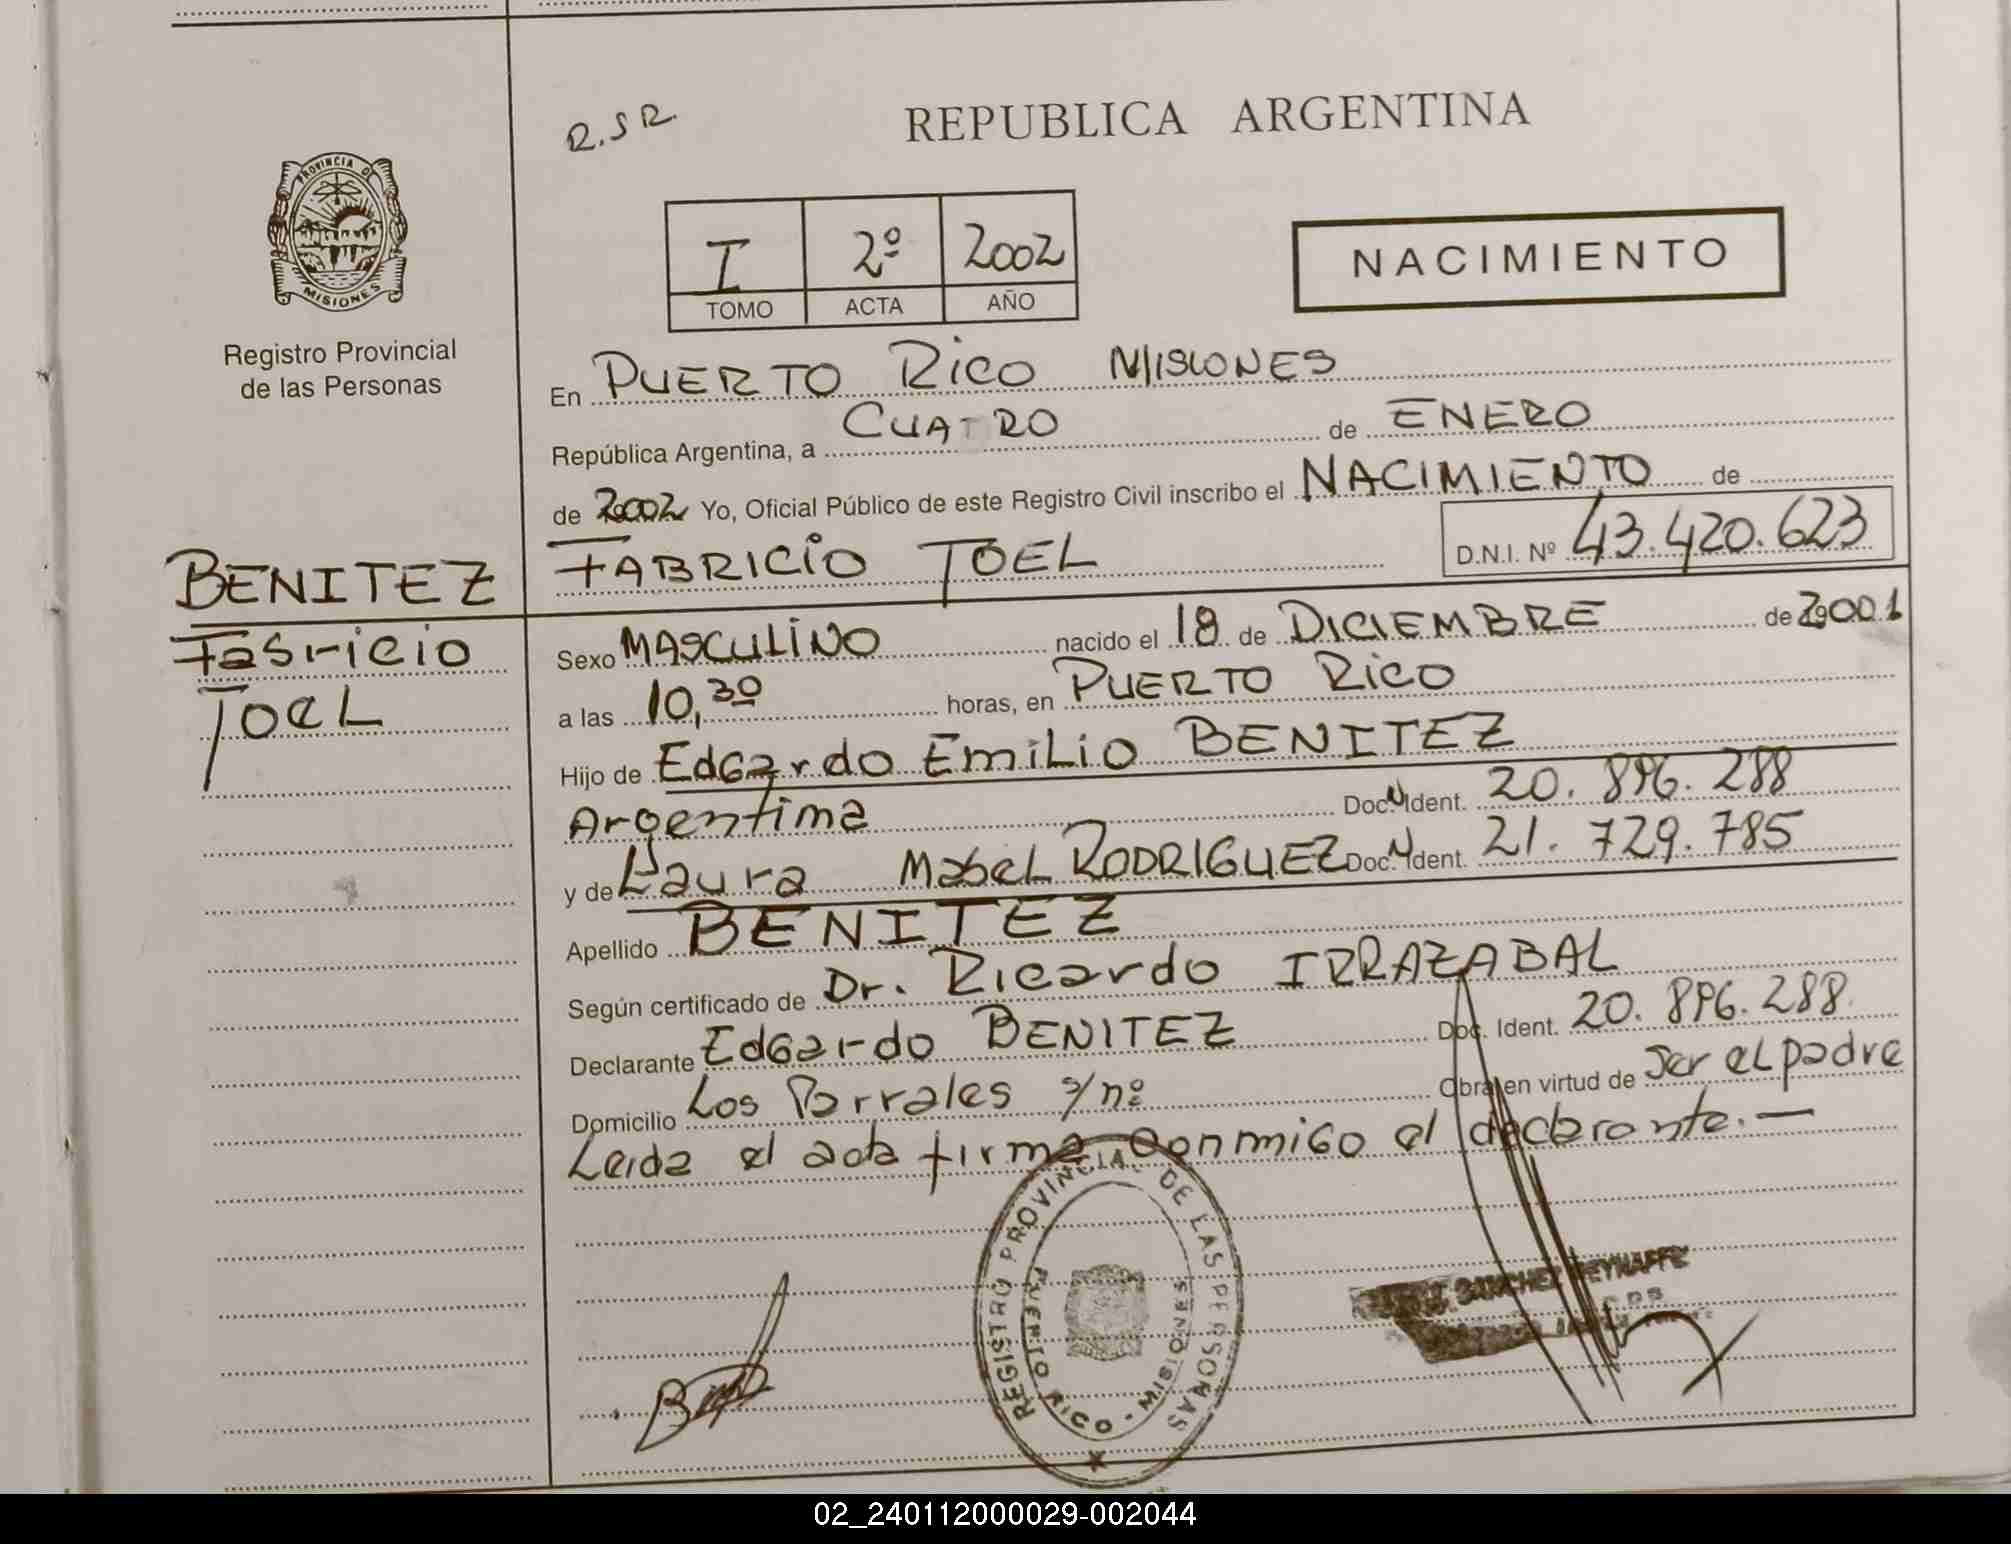 R.S.R.
REPUBLICA ARGENTINA
PROVINCIA DE
MISIONES
Registro Provincial
de las Personas
I 2º 2002
TOMO ACTA AÑO
NACIMIENTO
En PUERTO RICO MISIONES
República Argentina, a CUATRO de ENERO
de 2002 Yo, Oficial Público de este Registro Civil inscribo el NACIMIENTO de
FABRICIO JOEL D.N.I. Nº 43.420.623
BENITEZ
Fabricio
Joel
Sexo MASCULINO nacido el 18 de DICIEMBRE de 2001
a las 10,30 horas, en PUERTO RICO
Hijo de Edgardo Emilio BENITEZ
Argentina Doc. Ident. 20.896.288
y de Laura Mabel RODRIGUEZ Doc. Ident. 21.729.785
Apellido BENITEZ
Según certificado de Dr. Ricardo IRRAZABAL
Declarante Edgardo BENITEZ Doc. Ident. 20.896.288
Domicilio Los Parrales s/nº Obra en virtud de ser el padre
Leida el acta firma conmigo el declarante.—
REGISTRO PROVINCIAL DE LAS PERSONAS
PUERTO RICO - MISIONES
SANCHEZ
02_240112000029-002044